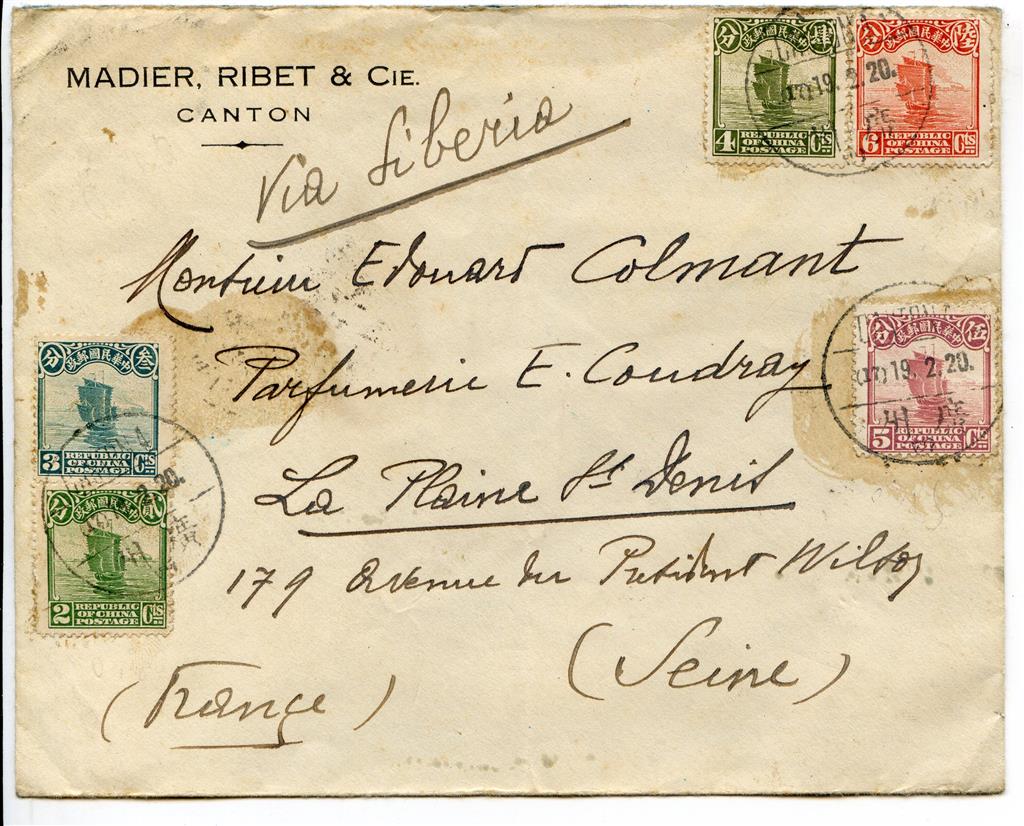 MADIER, RIBET & CIE.
CANTON
Via Siberia
Monsieur Edouard Colmant
Parfumerie E. Coudray
La Plaine St Denis
179 avenue du President Wilson
(Seine)
(France)
分 中華民國郵政 肆
4 REPUBLIC OF CHINA POSTAGE Cts
分 中華民國郵政 陸
6 REPUBLIC OF CHINA POSTAGE Cts
19.2.20.
分 中華民國郵政 伍
5 REPUBLIC OF CHINA POSTAGE Cts
CANTON
19.2.20.
州 廣
分 中華民國郵政 叁
3 REPUBLIC OF CHINA POSTAGE Cts
分 中華民國郵政 貳
2 REPUBLIC OF CHINA POSTAGE Cts
20.
州 廣